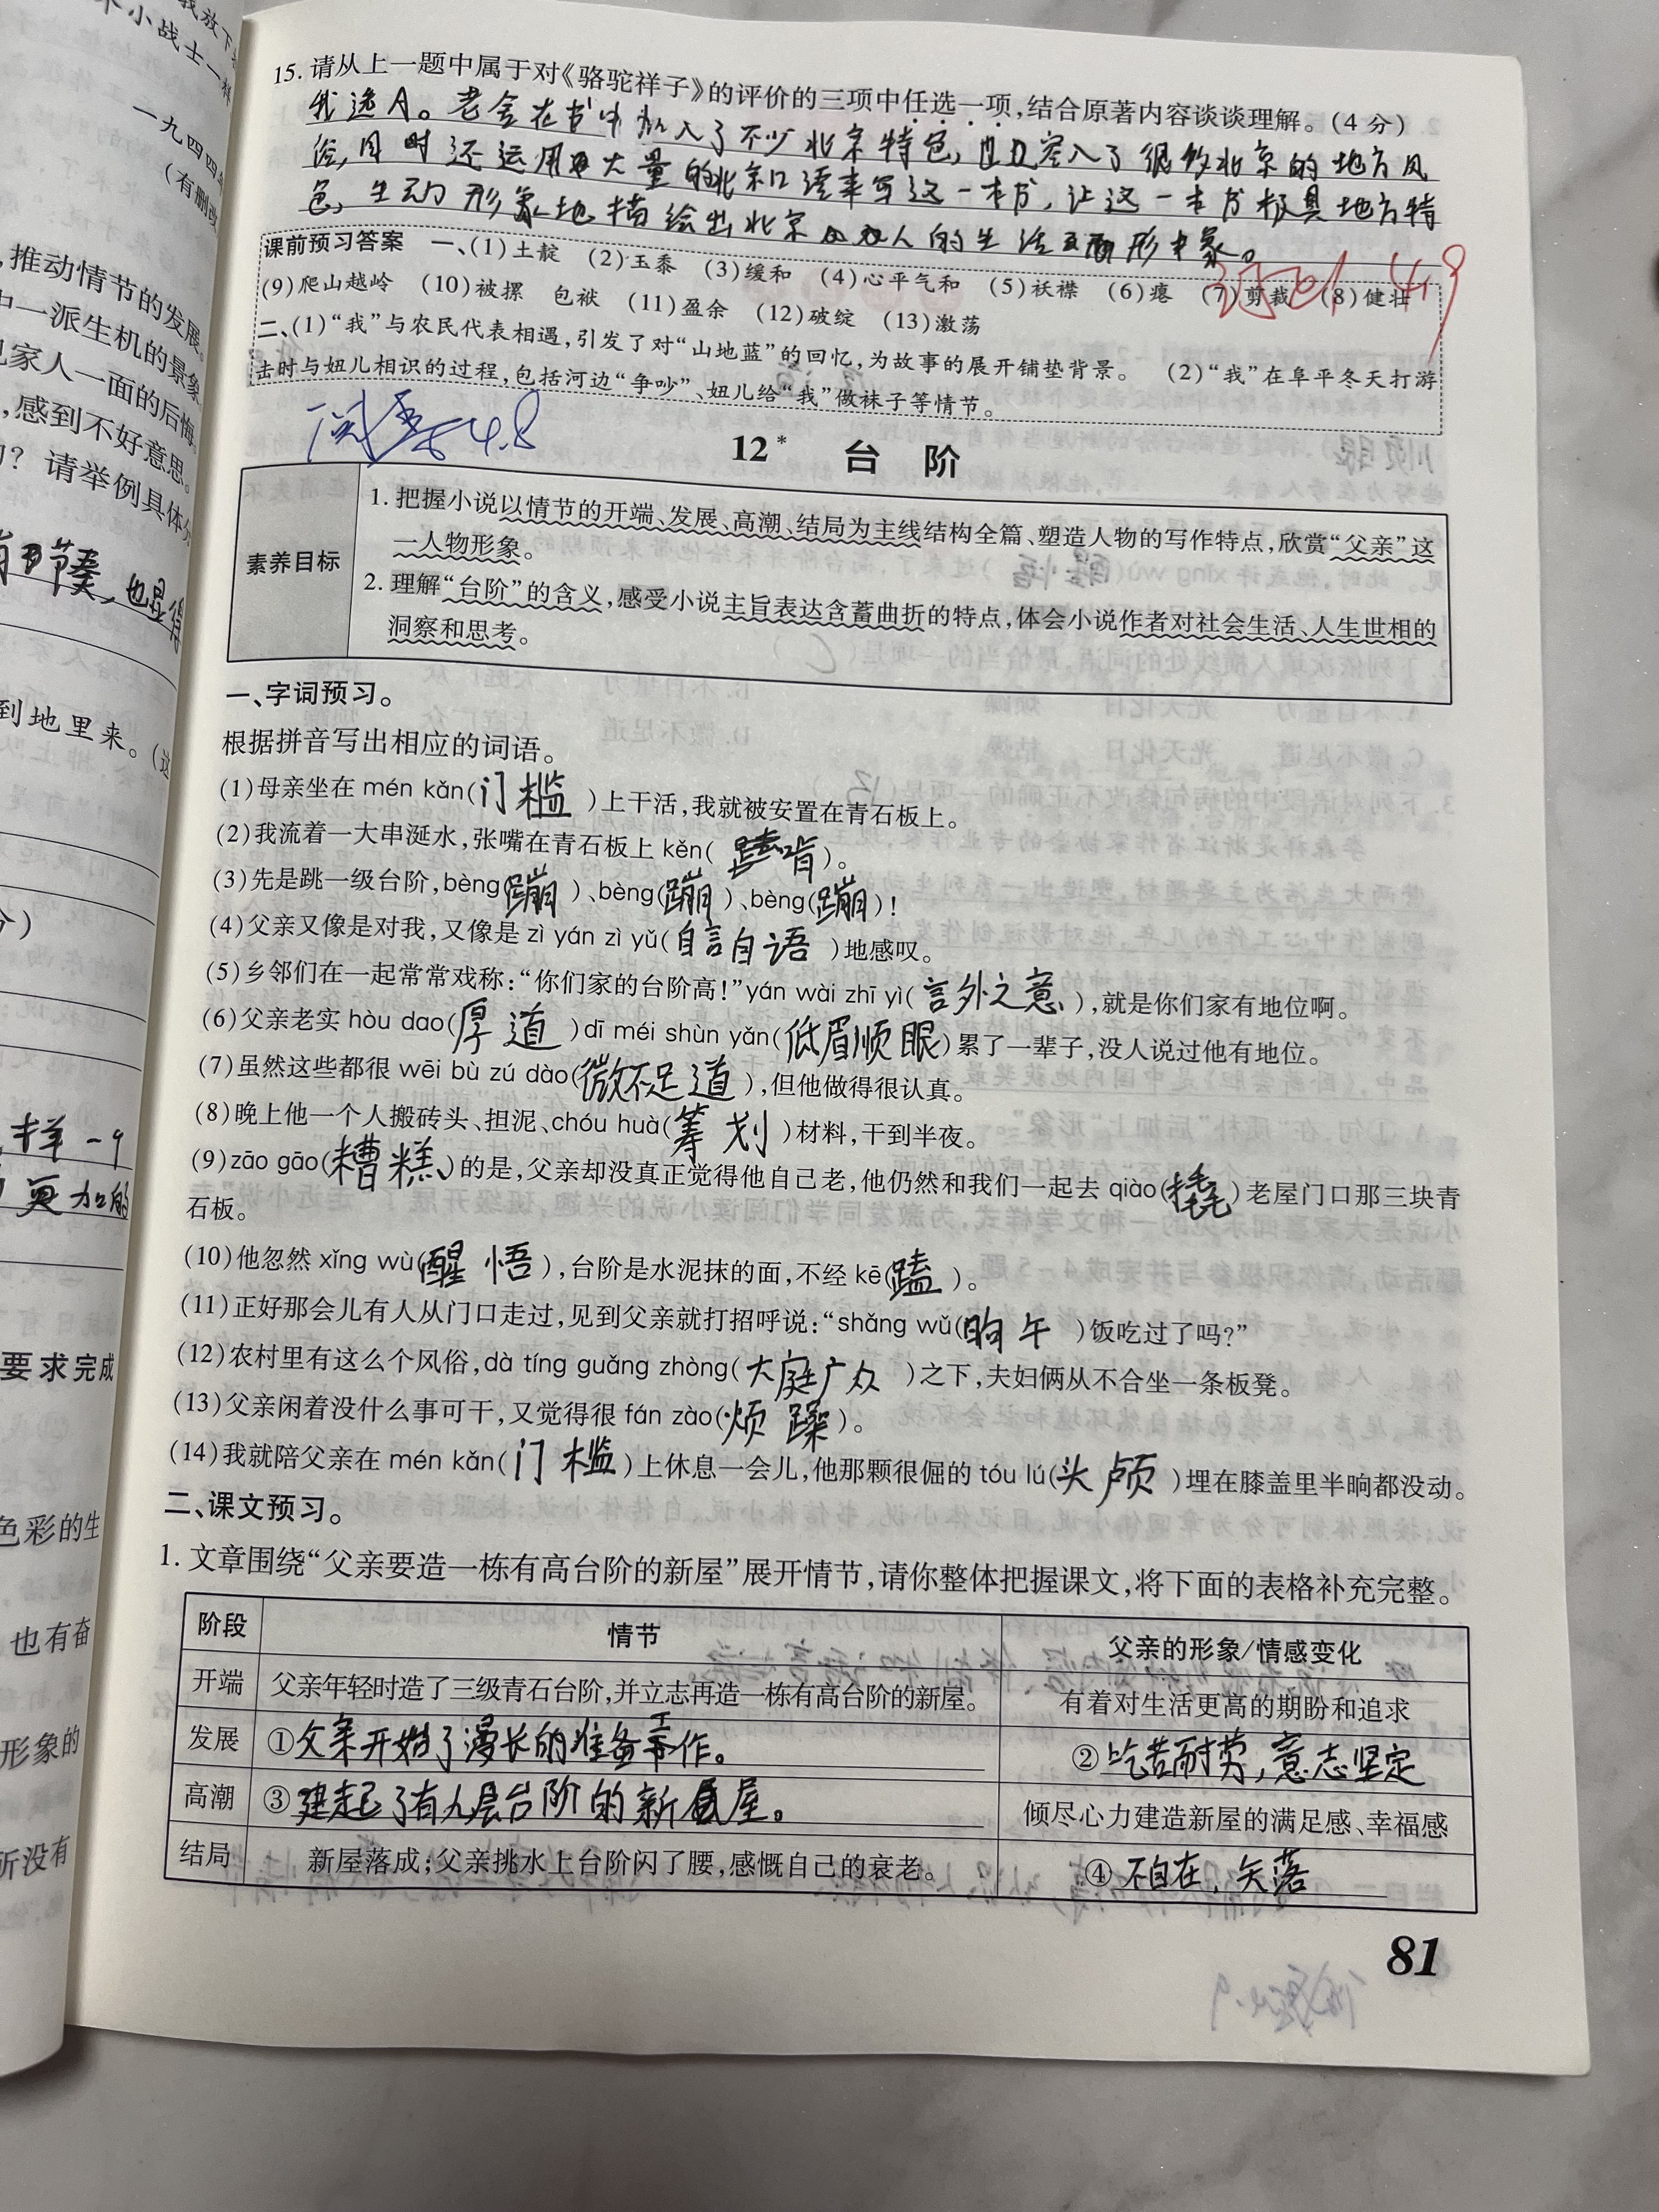 我放下
小战士一样
一九四四年
(有删改
,推动情节的发展。
中一派生机的景象
家人一面的后悔
,感到不好意思。
？请举例具体分
节奏,也显得
到地里来。(这
分)
样一
更加的
要求完成
色彩的生
也有奋
形象的
所没有
15.请从上一题中属于对《骆驼祥子》的评价的三项中任选一项,结合原著内容谈谈理解。(4分)
我选A。老舍在书中加入了不少北京特色,且融入了很多北京的地方风
俗,同时还运用大量的北京口语来写这一本书,让这一本书极具地方特
色,生动形象地描绘出北京人的生活形象。
课前预习答案 一、(1)土靛 (2)玉黍 (3)缓和 (4)心平气和 (5)袄襟 (6)瘪 (7)剪裁 (8)健壮
(9)爬山越岭 (10)被摞 包袱 (11)盈余 (12)破绽 (13)激荡
二、(1)“我”与农民代表相遇,引发了对“山地蓝”的回忆,为故事的展开铺垫背景。 (2)“我”在阜平冬天打游
击时与妞儿相识的过程,包括河边“争吵”、妞儿给“我”做袜子等情节。
4.9
4.8
12* 台 阶
素养目标
1.把握小说以情节的开端、发展、高潮、结局为主线结构全篇、塑造人物的写作特点,欣赏“父亲”这
一人物形象。
2.理解“台阶”的含义,感受小说主旨表达含蓄曲折的特点,体会小说作者对社会生活、人生世相的
洞察和思考。
一、字词预习。
根据拼音写出相应的词语。
(1)母亲坐在 mén kǎn(门槛)上干活,我就被安置在青石板上。
(2)我流着一大串涎水,张嘴在青石板上 kěn(啃)。
(3)先是跳一级台阶,bèng(蹦)、bèng(蹦)、bèng(蹦)!
(4)父亲又像是对我,又像是 zì yán zì yǔ(自言自语)地感叹。
(5)乡邻们在一起常常戏称:“你们家的台阶高!”yán wài zhī yì(言外之意),就是你们家有地位啊。
(6)父亲老实 hòu dao(厚道)dī méi shùn yǎn(低眉顺眼)累了一辈子,没人说过他有地位。
(7)虽然这些都很 wēi bù zú dào(微不足道),但他做得很认真。
(8)晚上他一个人搬砖头、担泥、chóu huà(筹划)材料,干到半夜。
(9)zāo gāo(糟糕)的是,父亲却没真正觉得他自己老,他仍然和我们一起去 qiào(撬)老屋门口那三块青
石板。
(10)他忽然 xǐng wù(醒悟),台阶是水泥抹的面,不经 kē(磕)。
(11)正好那会儿有人从门口走过,见到父亲就打招呼说:“shǎng wǔ(晌午)饭吃过了吗?”
(12)农村里有这么个风俗,dà tíng guǎng zhòng(大庭广众)之下,夫妇俩从不合坐一条板凳。
(13)父亲闲着没什么事可干,又觉得很 fán zào(烦躁)。
(14)我就陪父亲在 mén kǎn(门槛)上休息一会儿,他那颗很倔的 tóu lú(头颅)埋在膝盖里半晌都没动。
二、课文预习。
1.文章围绕“父亲要造一栋有高台阶的新屋”展开情节,请你整体把握课文,将下面的表格补充完整。
阶段 情节 父亲的形象/情感变化
开端 父亲年轻时造了三级青石台阶,并立志再造一栋有高台阶的新屋。 有着对生活更高的期盼和追求
发展 ①父亲开始了漫长的准备工作。 ②吃苦耐劳,意志坚定
高潮 ③建起了有九层台阶的新屋。 倾尽心力建造新屋的满足感、幸福感
结局 新屋落成;父亲挑水上台阶闪了腰,感慨自己的衰老。 ④不自在,失落
81